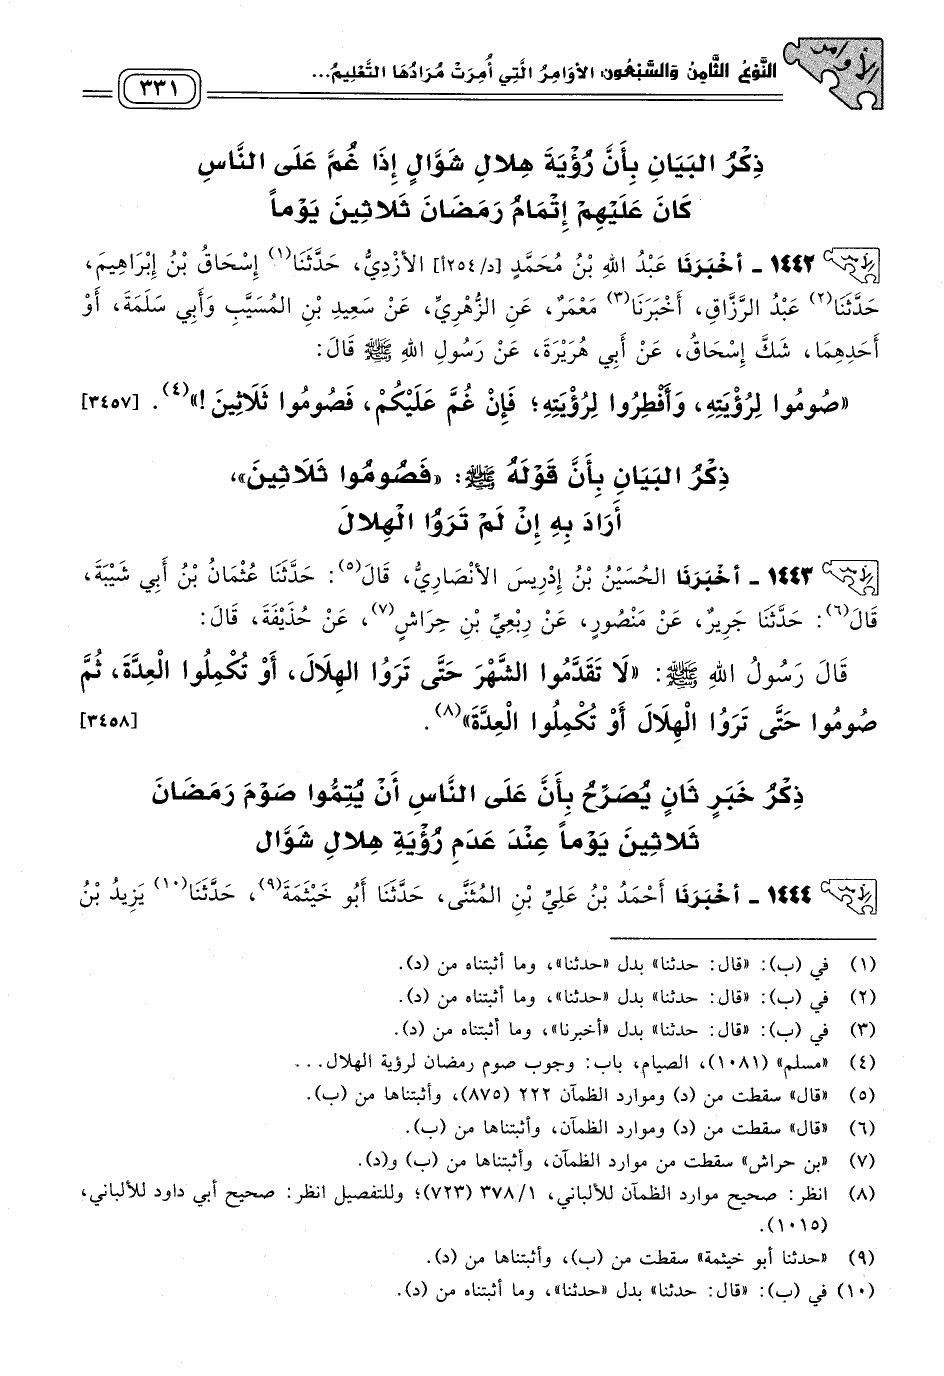 الأوامر
النَّوْعُ الثَّامِنُ وَالسَّبْعُونَ: الأَوَامِرُ الَّتِي أُمِرَتْ مُرَادُهَا التَّعْلِيمُ...
٣٣١
ذِكْرُ البَيَانِ بِأَنَّ رُؤْيَةَ هِلالِ شَوَّالٍ إِذَا غُمَّ عَلَى النَّاسِ
كَانَ عَلَيْهِمْ إِتْمَامُ رَمَضَانَ ثَلاثِينَ يَوْماً
١٤٤٢ - أَخْبَرَنَا عَبْدُ اللهِ بْنُ مُحَمَّدٍ [د/٢٥٤أ] الأَزْدِيُّ، حَدَّثَنَا(١) إِسْحَاقُ بْنُ إِبْرَاهِيمَ،
حَدَّثَنَا(٢) عَبْدُ الرَّزَّاقِ، أَخْبَرَنَا(٣) مَعْمَرٌ، عَنِ الزُّهْرِيِّ، عَنْ سَعِيدِ بْنِ المُسَيَّبِ وَأَبِي سَلَمَةَ، أَوْ
أَحَدِهِمَا، شَكَّ إِسْحَاقُ، عَنْ أَبِي هُرَيْرَةَ، عَنْ رَسُولِ اللهِ ﷺ قَالَ:
«صُومُوا لِرُؤْيَتِهِ، وَأَفْطِرُوا لِرُؤْيَتِهِ؛ فَإِنْ غُمَّ عَلَيْكُمْ، فَصُومُوا ثَلَاثِينَ!»(٤). [٣٤٥٧]
ذِكْرُ البَيَانِ بِأَنَّ قَوْلَهُ ﷺ: «فَصُومُوا ثَلَاثِينَ»،
أَرَادَ بِهِ إِنْ لَمْ تَرَوُا الْهِلالَ
١٤٤٣ - أَخْبَرَنَا الحُسَيْنُ بْنُ إِدْرِيسَ الأَنْصَارِيُّ، قَالَ(٥): حَدَّثَنَا عُثْمَانُ بْنُ أَبِي شَيْبَةَ،
قَالَ(٦): حَدَّثَنَا جَرِيرٌ، عَنْ مَنْصُورٍ، عَنْ رِبْعِيِّ بْنِ حِرَاشٍ(٧)، عَنْ حُذَيْفَةَ، قَالَ:
قَالَ رَسُولُ اللهِ ﷺ: «لَا تَقَدَّمُوا الشَّهْرَ حَتَّى تَرَوُا الهِلَالَ، أَوْ تُكْمِلُوا الْعِدَّةَ، ثُمَّ
صُومُوا حَتَّى تَرَوُا الْهِلَالَ أَوْ تُكْمِلُوا الْعِدَّةَ»(٨). [٣٤٥٨]
ذِكْرُ خَبَرٍ ثَانٍ يُصَرِّحُ بِأَنَّ عَلَى النَّاسِ أَنْ يُتِمُّوا صَوْمَ رَمَضَانَ
ثَلاثِينَ يَوْماً عِنْدَ عَدَمِ رُؤْيَةِ هِلالِ شَوَّال
١٤٤٤ - أَخْبَرَنَا أَحْمَدُ بْنُ عَلِيِّ بْنِ المُثَنَّى، حَدَّثَنَا أَبُو خَيْثَمَةَ(٩)، حَدَّثَنَا(١٠) يَزِيدُ بْنُ
(١) في (ب): «قال: حدثنا» بدل «حدثنا»، وما أثبتناه من (د).
(٢) في (ب): «قال: حدثنا» بدل «حدثنا»، وما أثبتناه من (د).
(٣) في (ب): «قال: حدثنا» بدل «أخبرنا»، وما أثبتناه من (د).
(٤) «مسلم» (١٠٨١)، الصيام، باب: وجوب صوم رمضان لرؤية الهلال...
(٥) «قال» سقطت من (د) وموارد الظمآن ٢٢٢ (٨٧٥)، وأثبتناها من (ب).
(٦) «قال» سقطت من (د) وموارد الظمآن، وأثبتناها من (ب).
(٧) «بن حراش» سقطت من موارد الظمآن، وأثبتناها من (ب) و(د).
(٨) انظر: صحيح موارد الظمآن للألباني، ٣٧٨/١ (٧٢٣)؛ وللتفصيل انظر: صحيح أبي داود للألباني،
(١٠١٥).
(٩) «حدثنا أبو خيثمة» سقطت من (ب)، وأثبتناها من (د).
(١٠) في (ب): «قال: حدثنا» بدل «حدثنا»، وما أثبتناه من (د).